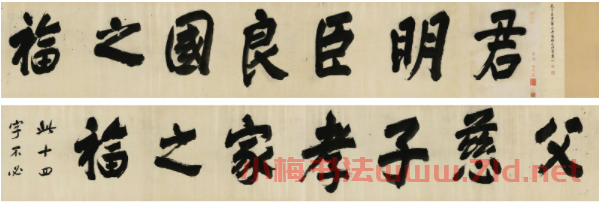 君明臣良國之福
父慈子孝家之福
此十四
字不必
小梅书法www.zld.net